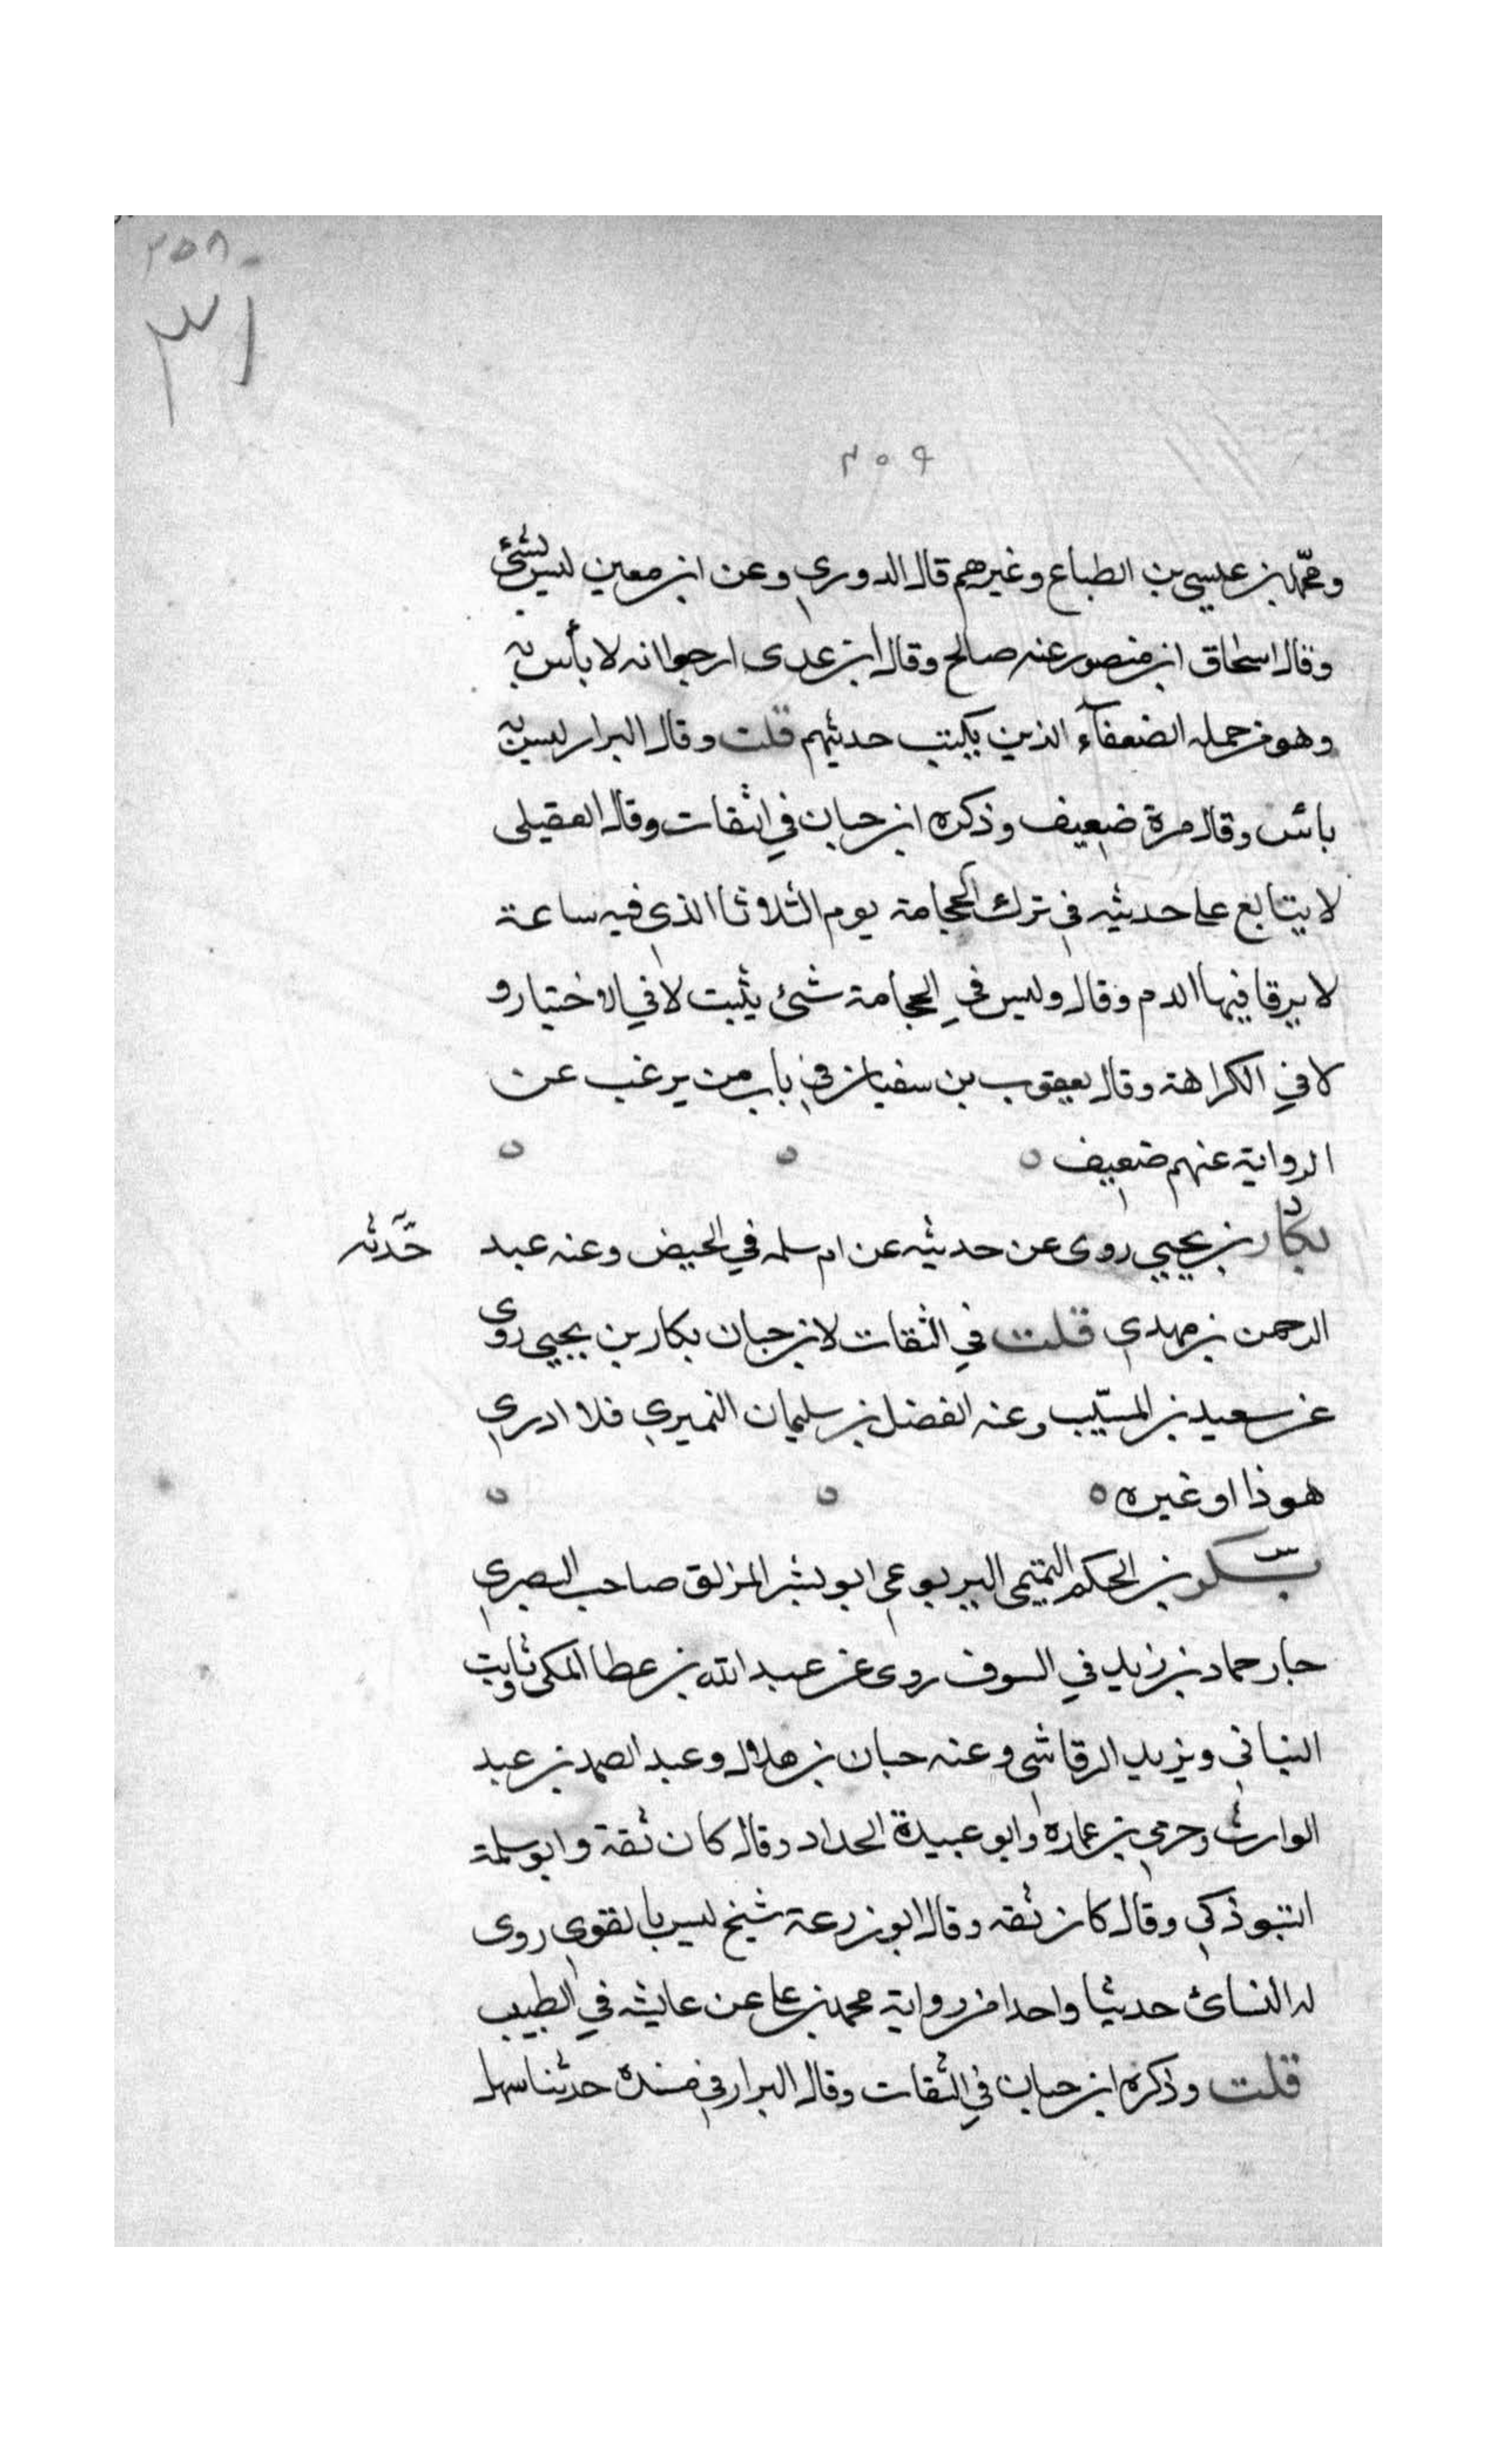 ٢٥٨
٣١
٢٥٩
ومحمد بن عيسى بن الطباع وغيرهم قال الدوري وعن ابن معين ليس بشئ
وقال اسحاق ابن منصور عنه صالح وقال ابن عدى ارجوا انه لا بأس به
وهو من جمله الضعفآء الذين يكتب حديثهم قلت وقال البزار ليس به
بائس وقال مرة ضعيف وذكره ابن حبان في الثقات وقال العقيلى
لا يتابع على حديثه في ترك الحجامة يوم الثلاثا الذى فيه ساعة
لا يرقا فيها الدم وقال وليس في الحجامة شئ يثبت لا في الاختيار و
لا في الكراهة وقال يعقوب بن سفيان في باب من يرغب عن
الرواية عنهم ضعيف
بكار بن يحيي روى عن حديثه عن ام سلمه في الحيض وعنه عبد
حَدته
الرحمن بن مهدي قلت في الثقات لابن حبان بكار بن يحيي روى
عن سعيد بن المسيّب وعنه الفضل بن سليمان النميري فلا ادري
هوذا او غيره
بن الحكم التميمى اليربوعي ابو بشر المزلق صاحب البصري
جار حماد بن زيد في السوق روى عن عبد الله بن عطا المكى وثابت
البناني ويزيد الرقاشى وعنه حبان بن هلال وعبد الصمد بن عبد
الوارث وحرمي بن عماره وابو عبيدة الحداد وقال كان ثقة وابو سلمة
التبوذكي وقال كان ثقه وقال ابو زرعة شيخ ليس بالقوي روى
له النسائ حديثا واحدا من رواية محمد بن على عن عايشه في الطيب
قلت وذكره ابن حبان في الثقات وقال البزار في مسنده حدثنا سهل